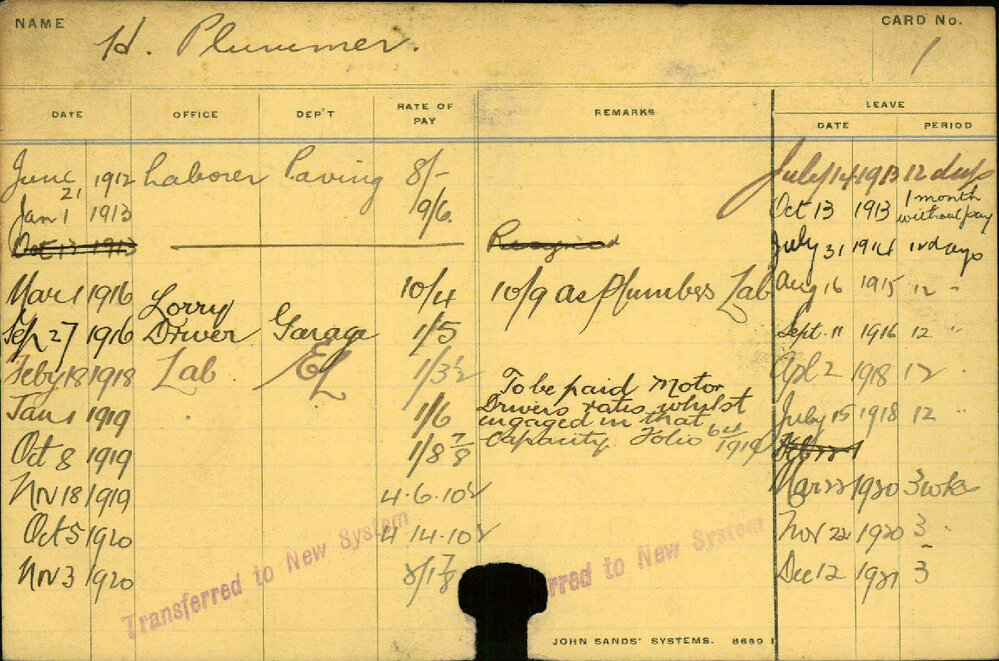 NAME H. Plummer. CARD No. 1
LEAVE
DATE OFFICE DEP'T RATE OF PAY REMARKS DATE PERIOD
June 21 1912 Laborer Paving 8/- July 14 1913 12 days
Jan 1 1913 9/6. Oct 13 1913 1 month without pay
Oct 13 1913 Resigned July 31 1914 12 days
Mar 1 1916 10/4 10/9 as Plumbers Lab Aug 16 1915 12 "
Sep 27 1916 Lorry Driver Garage 1/5 Sept. 11 1916 12 "
Feby 18 1918 Lab. EL 1/3½ Apl 2 1918 12 "
Jan 1 1919 1/6 To be paid Motor July 15 1918 12 "
Drivers rates whilst
engaged in that
Oct 8 1919 1/8 7/8 capacity. Folio 1919
Nov 18 1919 4.6.10½ Mar 22 1920 3 wks
Oct 5 1920 4 14.10½ Nov 22 1920 3 "
Nov 3 1920 2/1 7/8 Dec 12 1921 3 "
Transferred to New System
rred to New System
JOHN SANDS' SYSTEMS. 8669